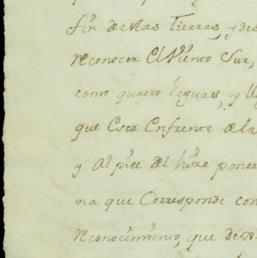 fin de estas Tierras, y des
reconocer El Viento Sur,
como quatro leguas, y ll
que esta Enfrente de la
y Al piée del poner
na que Corresponde con
Reconocimiento, que des